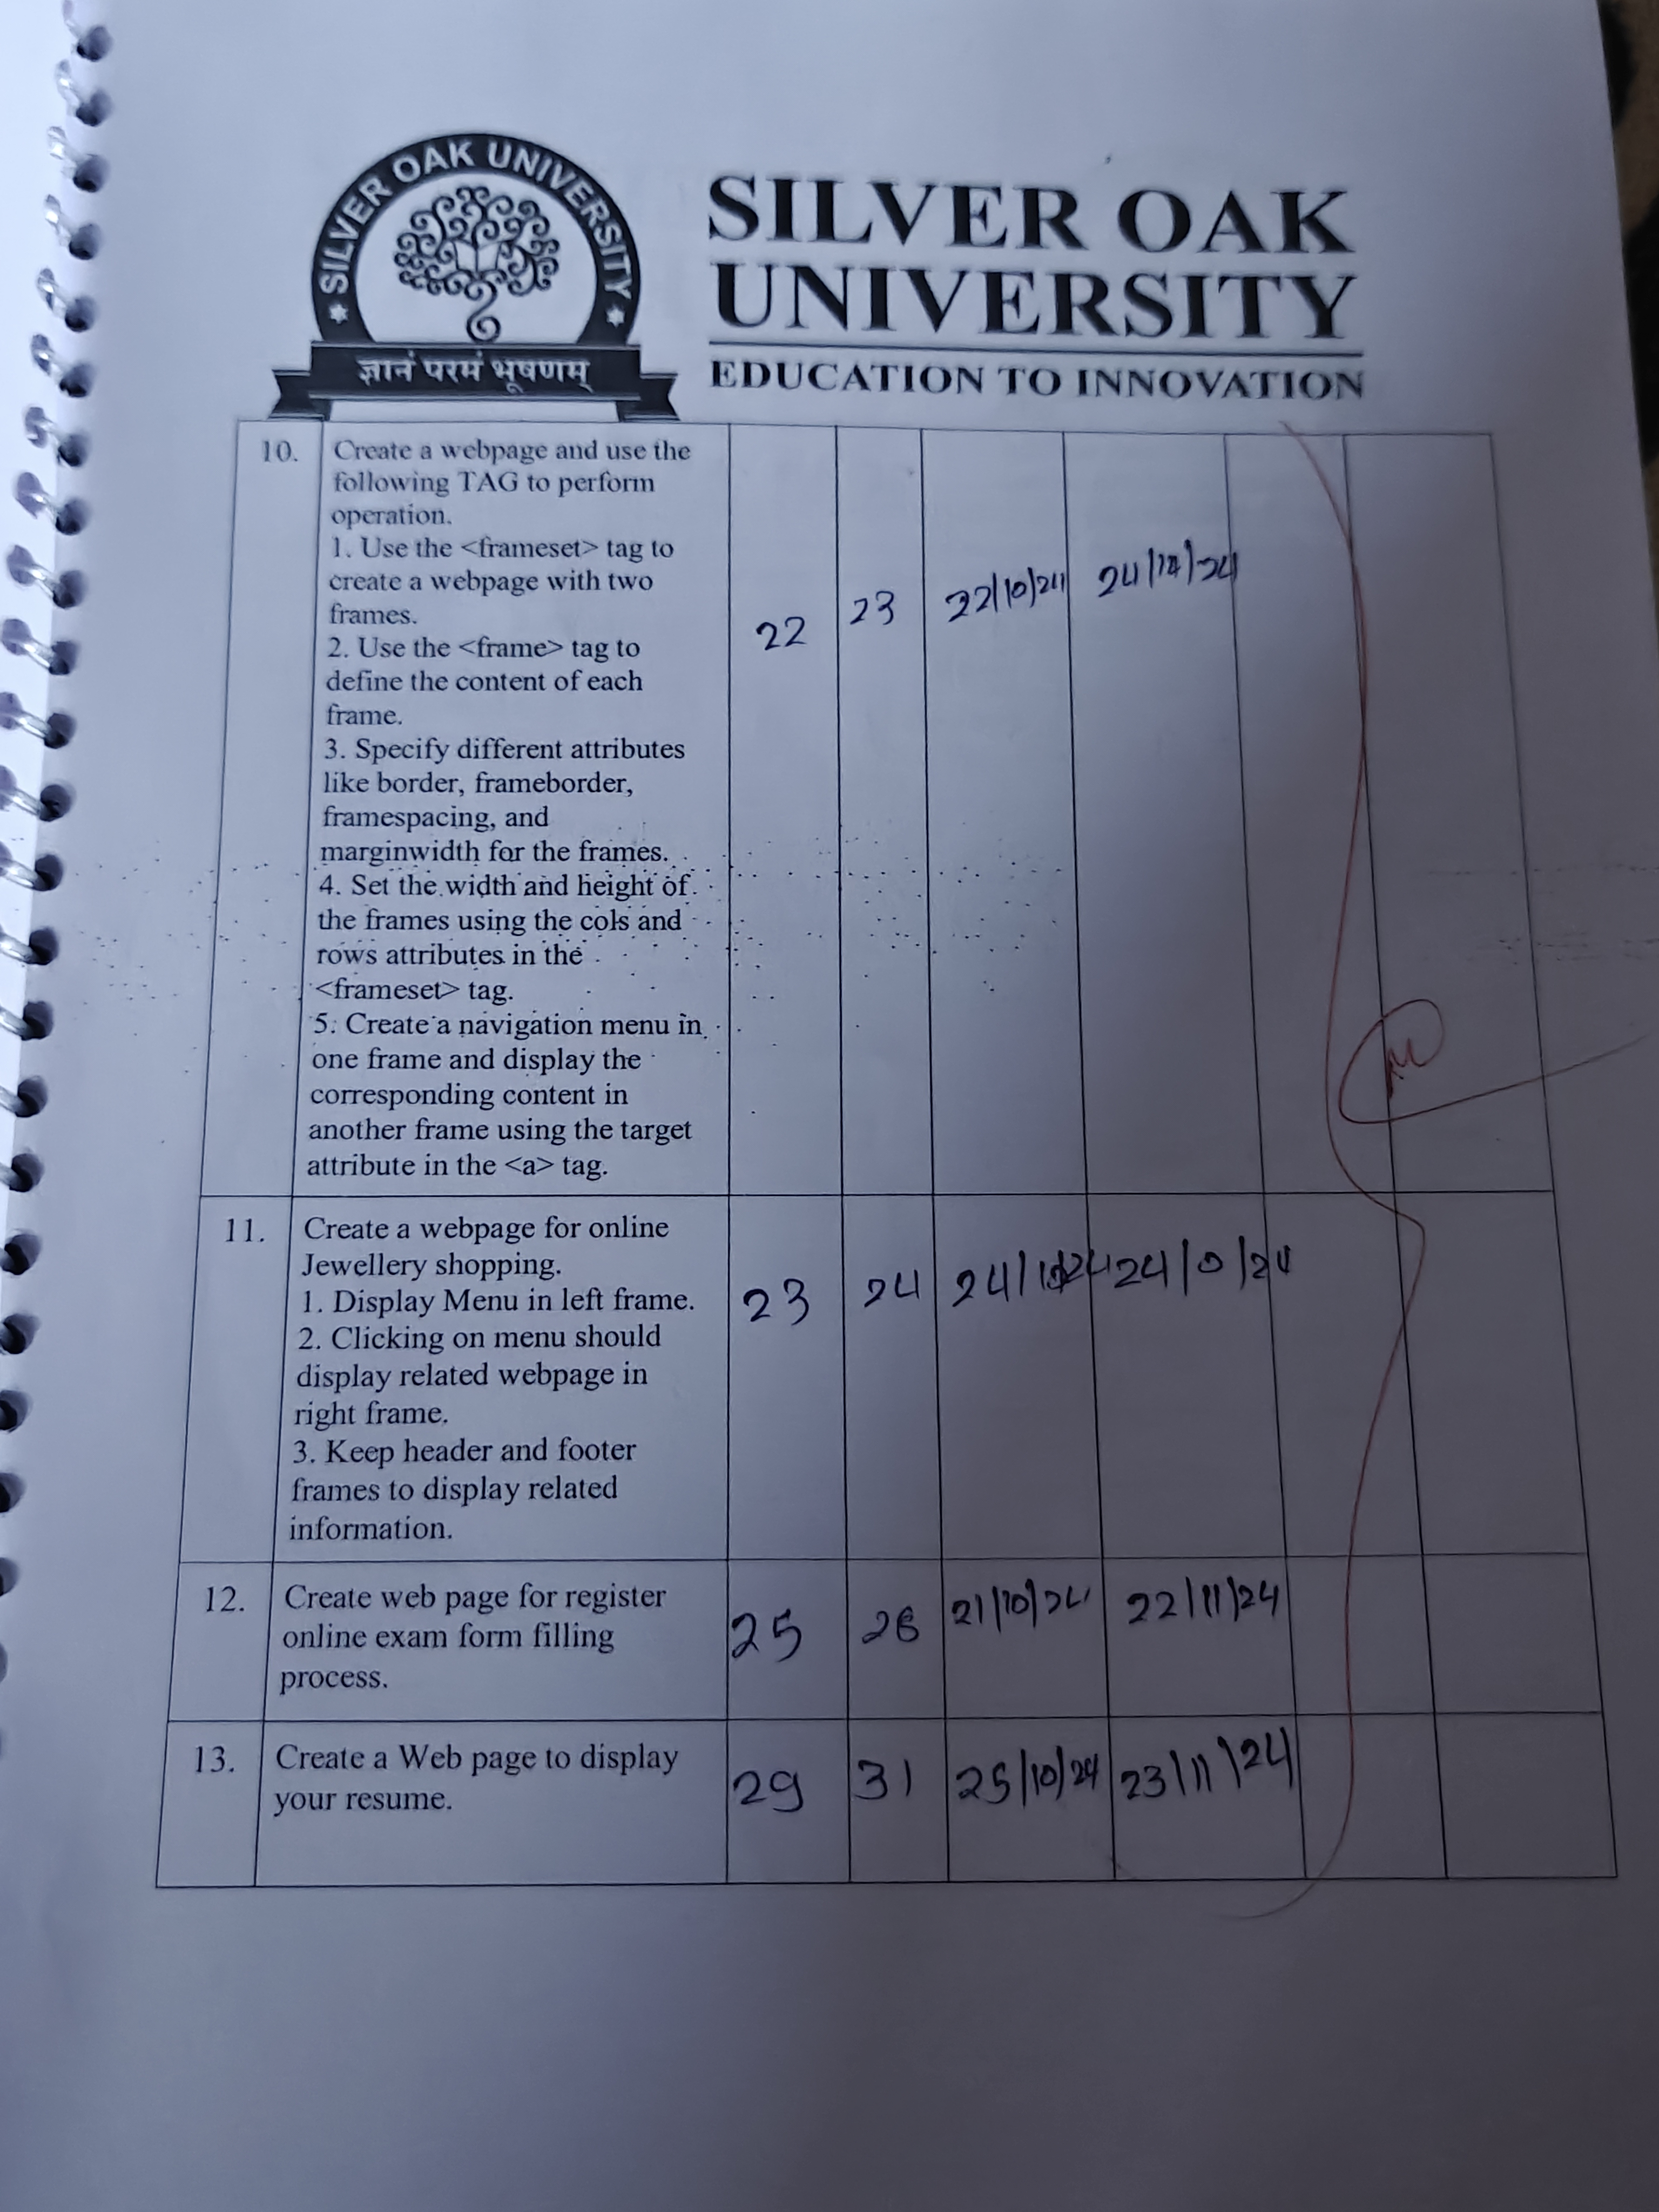 SILVER OAK UNIVERSITY
ज्ञानं परमं भूषणम्
SILVER OAK
UNIVERSITY
EDUCATION TO INNOVATION
10. Create a webpage and use the
following TAG to perform
operation.
1. Use the <frameset> tag to
create a webpage with two
frames.
2. Use the <frame> tag to
define the content of each
frame.
3. Specify different attributes
like border, frameborder,
framespacing, and
marginwidth for the frames.
4. Set the width and height of
the frames using the cols and
rows attributes in the
<frameset> tag.
5. Create a navigation menu in
one frame and display the
corresponding content in
another frame using the target
attribute in the <a> tag.
22 23 22/10/24
11. Create a webpage for online
Jewellery shopping.
1. Display Menu in left frame.
2. Clicking on menu should
display related webpage in
right frame.
3. Keep header and footer
frames to display related
information.
23 24 24/0/24
12. Create web page for register
online exam form filling
process.
25 28 21/10/24 22/11/24
13. Create a Web page to display
your resume.
29 31 25/10/24 23/11/24